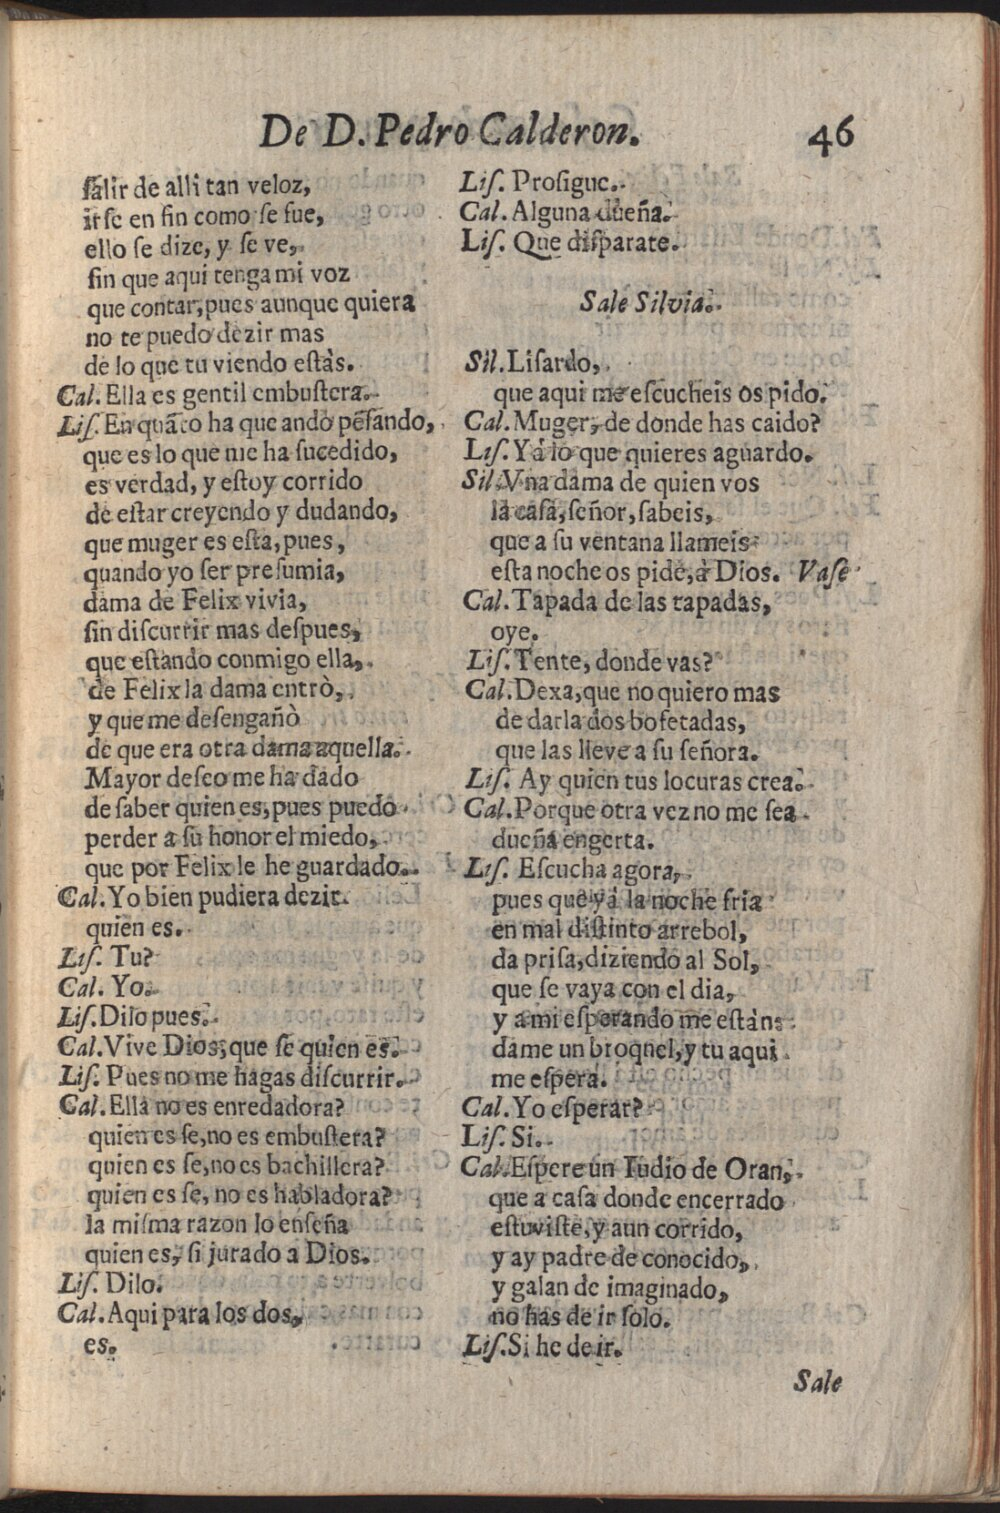 De D. Pedro Calderon. 46
ſalir de alli tan veloz,
irſe en fin como ſe fue,
ello ſe dize, y ſe ve,
ſin que aqui tenga mi voz
que contar, pues aunque quiera
no te puedo dezir mas
de lo que tu viendo eſtàs.
Cal. Ella es gentil embuſtera.
Liſ. En quãto ha que ando pẽſando,
que es lo que me ha ſucedido,
es verdad, y eſtoy corrido
de eſtar creyendo y dudando,
que muger es eſta, pues,
quando yo ſer preſumia,
dama de Felix vivia,
ſin diſcurrir mas deſpues,
que eſtando conmigo ella,
de Felix la dama entrò,
y que me deſengañò
de que era otra dama aquella.
Mayor deſeo me ha dado
de ſaber quien es, pues puedo
perder a ſu honor el miedo,
que por Felix le he guardado.
Cal. Yo bien pudiera dezir
quien es.
Liſ. Tu?
Cal. Yo.
Liſ. Dilo pues.
Cal. Vive Dios, que ſe quien es.
Liſ. Pues no me hagas diſcurrir.
Cal. Ella no es enredadora?
quien es ſe, no es embuſtera?
quien es ſe, no es bachillera?
quien es ſe, no es habladora?
la miſma razon lo enſeña
quien es, ſi jurado a Dios.
Liſ. Dilo.
Cal. Aqui para los dos,
es.
Liſ. Proſigue.
Cal. Alguna dueña.
Liſ. Que diſparate.
Sale Silvia.
Sil. Liſardo,
que aqui me eſcucheis os pido.
Cal. Muger, de donde has caido?
Liſ. Yá lo que quieres aguardo.
Sil. Vna dama de quien vos
la caſa, ſeñor, ſabeis,
que a ſu ventana llameis
eſta noche os pide, à Dios. Vaſe
Cal. Tapada de las tapadas,
oye.
Liſ. Tente, donde vas?
Cal. Dexa, que no quiero mas
de darla dos bofetadas,
que las lleve a ſu ſeñora.
Liſ. Ay quien tus locuras crea.
Cal. Porque otra vez no me ſea
dueña engerta.
Liſ. Eſcucha agora,
pues que yá la noche fria
en mal diſtinto arrebol,
da priſa, diziendo al Sol,
que ſe vaya con el dia,
y a mi eſperando me eſtàn:
dame un broquel, y tu aqui
me eſpera.
Cal. Yo eſperar?
Liſ. Si.
Cal. Eſpere un Iudio de Oran,
que a caſa donde encerrado
eſtuviſte, y aun corrido,
y ay padre de conocido,
y galan de imaginado,
no has de ir ſolo.
Liſ. Si he de ir.
Sale